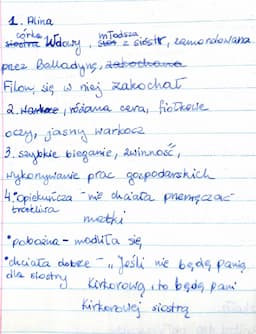 1. Alina
córka młodsza
siostra Wdowy, sios z sióstr, zamordowana
przez Balladynę, zakochana
Filon się w niej zakochał
2. warkocz, różana cera, fiołkowe
oczy, jasny warkocz
3. szybkie bieganie, zwinność,
wykonywanie prac gospodarskich
4. •opiekuńcza - nie chciała przemęczać
troskliwa
matki
•pobożna - modliła się
•chciała dobrze - "Jeśli nie będę panią
dla siostry
Kirkorową, to będę pani
Kirkorowej siostrą